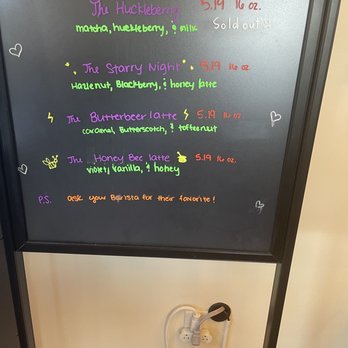 The Huckleberry 5.19 16 oz.
matcha, huckleberry, & milk Sold out
The Starry Night 5.19 16 oz.
Hazlenut, Blackberry, & honey latte
The Butterbeer latte 5.19 16 oz.
caramel, Butterscotch, & toffeenut
The Honey Bee latte 5.19 16 oz.
violet, vanilla, & honey
P.S. ask your Barista for their favorite!